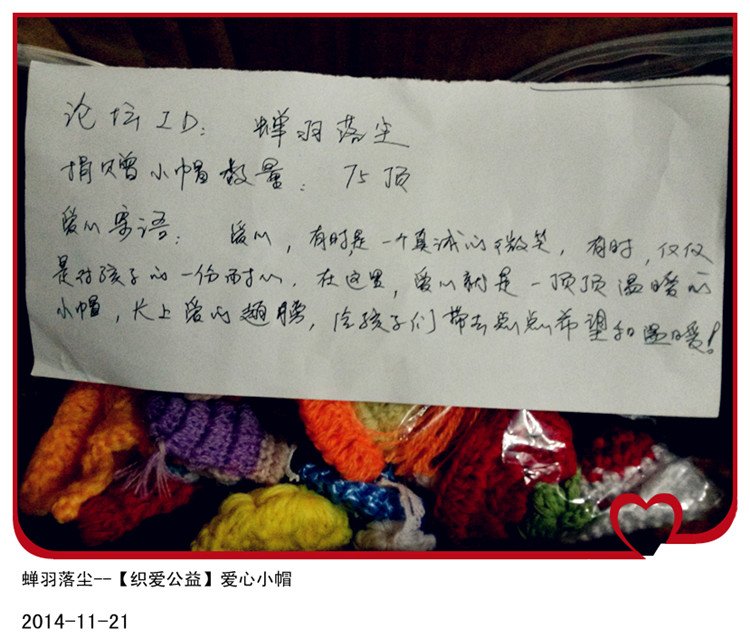 论坛ID: 蝉羽落尘
捐赠小帽数量: 75顶
爱心寄语: 爱心,有时是一个真诚的微笑,有时,仅仅
是对孩子的一份耐心,在这里,爱心就是一顶顶温暖的
小帽,长上爱的翅膀,给孩子们带去点点希望和温暖!
蝉羽落尘--【织爱公益】爱心小帽
2014-11-21